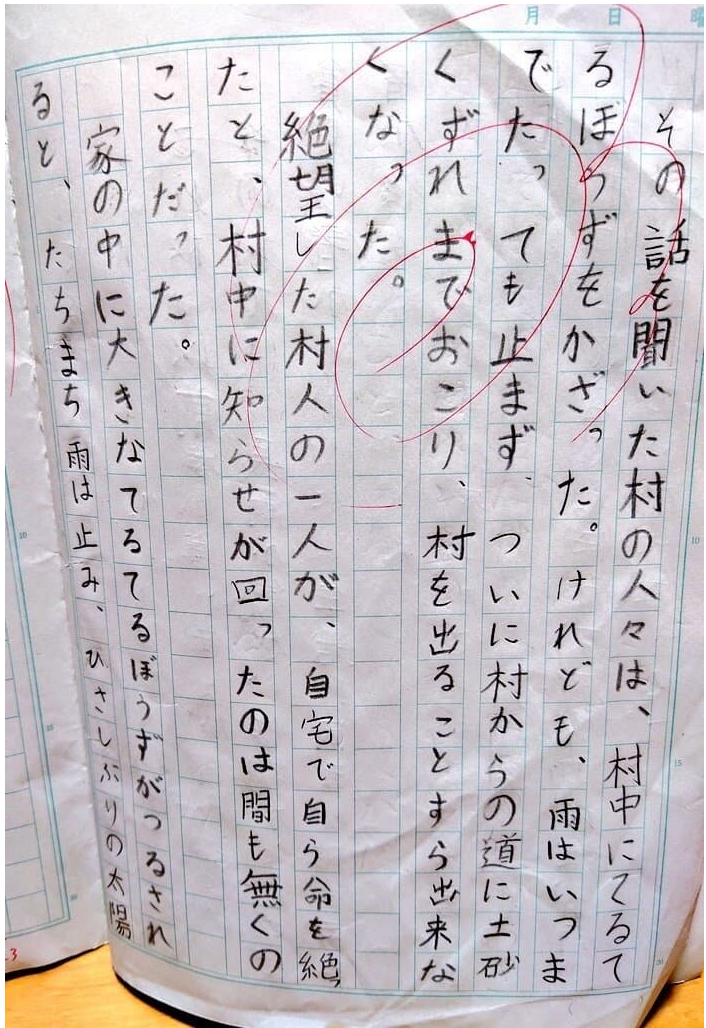 月 日 曜
その話を聞いた村の人々は、村中にてるて
るぼうずをかざった。けれども、雨はいつま
でたっても止まず、ついに村からの道に土砂
くずれまでおこり、村を出ることすら出来な
くなった。
絶望した村人の一人が、自宅で自ら命を絶っ
たと、村中に知らせが回ったのは間も無くの
ことだった。
家の中に大きなてるてるぼうずがつるされ
ると、たちまち雨は止み、ひさしぶりの太陽